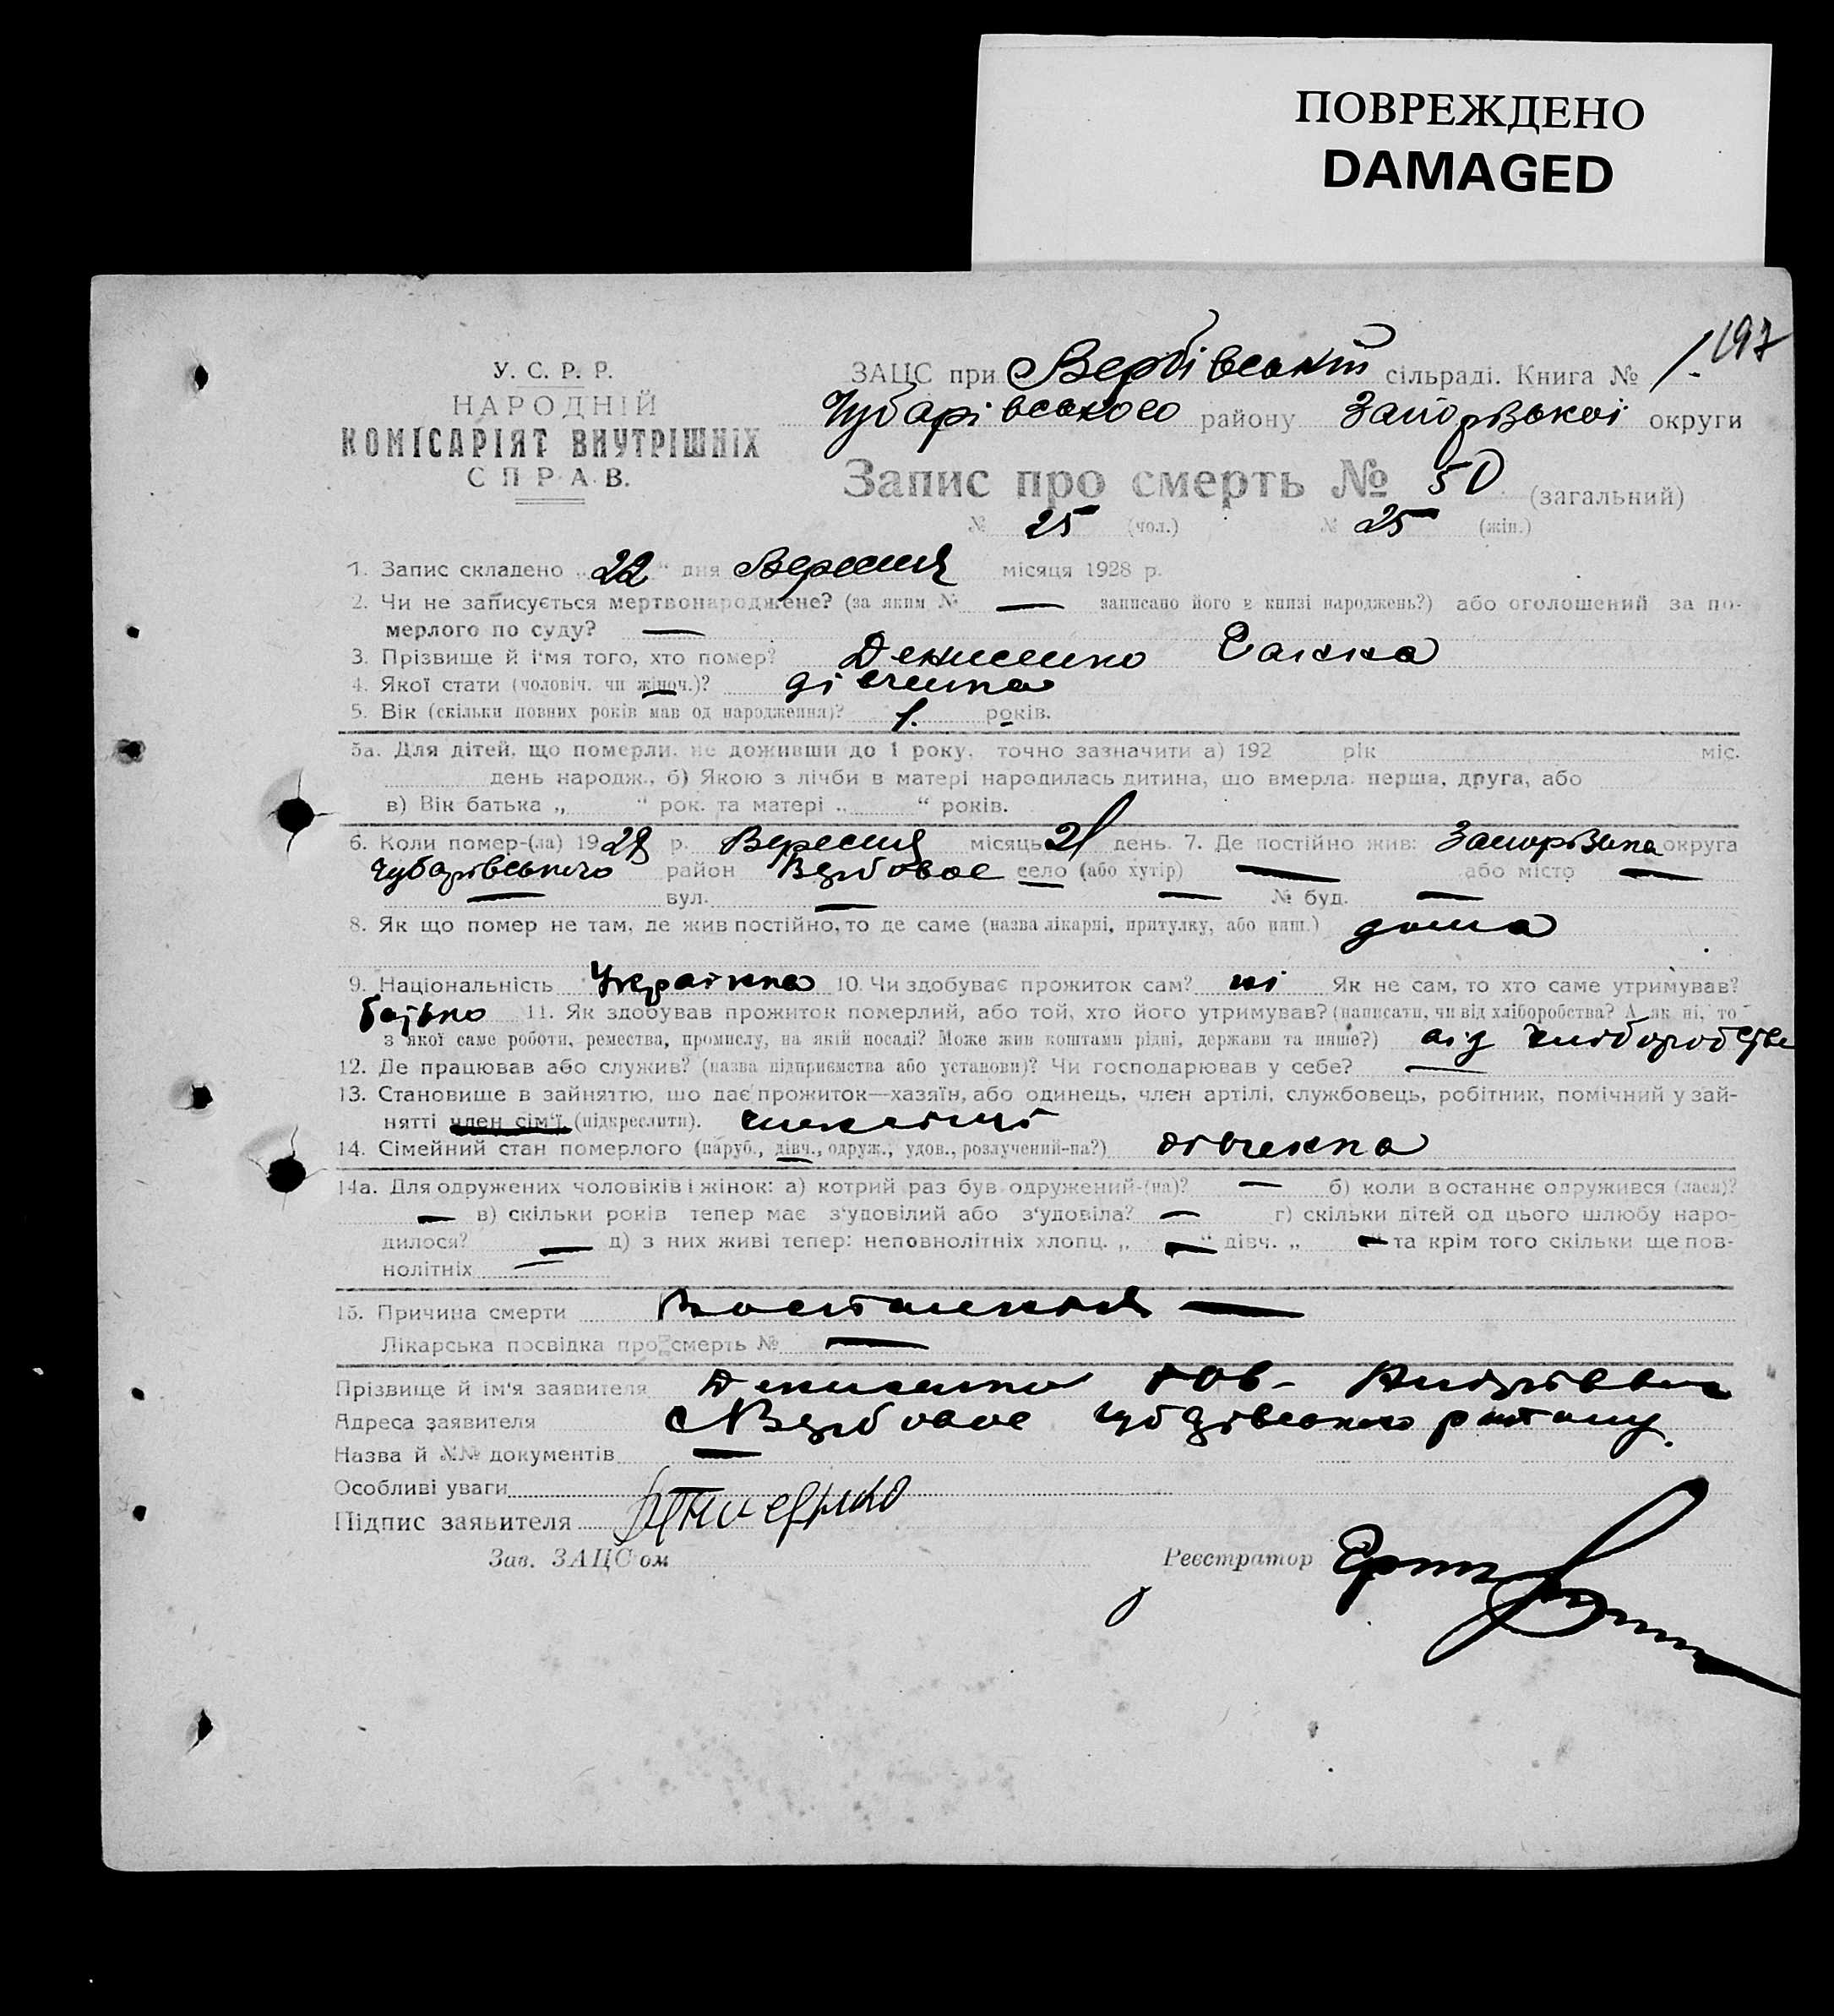 ПОВРЕЖДЕНО
DAMAGED
197
У. С. Р. Р.
НАРОДНІЙ
КОМІСАРІЯТ ВНУТРІШНІХ
СПРАВ.
ЗАЦС при Вербівській сільраді. Книга № 1.
Чубарівського району Запорізької округи
Запис про смерть № 50 (загальний)
№ 25 (чол.) № 25 (жін.)
1. Запис складено „22“ дня Вересня місяця 1928 р.
2. Чи не записується мертвонароджене? (за яким № — записано його в книзі народжень?) або оголошений за по-
мерлого по суду? —
3. Прізвище й і'мя того, хто помер? Денисенко Ганна
4. Якої стати (чоловіч. чи жіноч.)? дівчинка
5. Вік (скільки повних років мав од народження)? 1. років.
5а. Для дітей, що померли, не доживши до 1 року, точно зазначити а) 192 рік міс.
день народж., б) Якою з лічби в матері народилась дитина, що вмерла: перша, друга, або
в) Вік батька „ “ рок. та матері „ “ років.
6. Коли помер-(ла) 1928 р. Вересня місяць 21 день. 7. Де постійно жив: Запорізька округа
Чубарівського район Вербовое село (або хутір) — або місто —
— вул. — — № буд. —
8. Як що помер не там, де жив постійно, то де саме (назва лікарні, притулку, або инш.) дома
9. Національність Українка 10. Чи здобуває прожиток сам? ні Як не сам, то хто саме утримував?
батько 11. Як здобував прожиток померлий, або той, хто його утримував? (написати, чи від хліборобства? А як ні, то
з якої саме роботи, ремества, промислу, на якій посаді? Може жив коштами рідні, держави та инше?) від хліборобства
12. Де працював або служив? (назва підприємства або установи)? Чи господарював у себе? —
13. Становище в зайняттю, що дає прожиток—хазяїн, або одинець, член артілі, службовець, робітник, помічний у зай-
нятті член сім'ї, (підкреслити).
14. Сімейний стан померлого (паруб., дівч., одруж., удов., розлучений-на?) дівчинка
14а. Для одружених чоловіків і жінок: а) котрий раз був одружений-(на)? — б) коли востаннє одружився (лася)?
— в) скільки років тепер має з'удовілий або з'удовіла? — г) скільки дітей од цього шлюбу наро-
дилося? — д) з них живі тепер: неповнолітніх хлопц. „ — “ дівч. „ — та крім того скільки ще пов-
нолітніх —
15. Причина смерти —
Лікарська посвідка про смерть № —
Прізвище й ім'я заявителя Денисенко
Адреса заявителя с Вербовое Чубарівського району.
Назва й №№ документів —
Особливі уваги
Підпис заявителя
Зав. ЗАЦС'ом Реєстратор